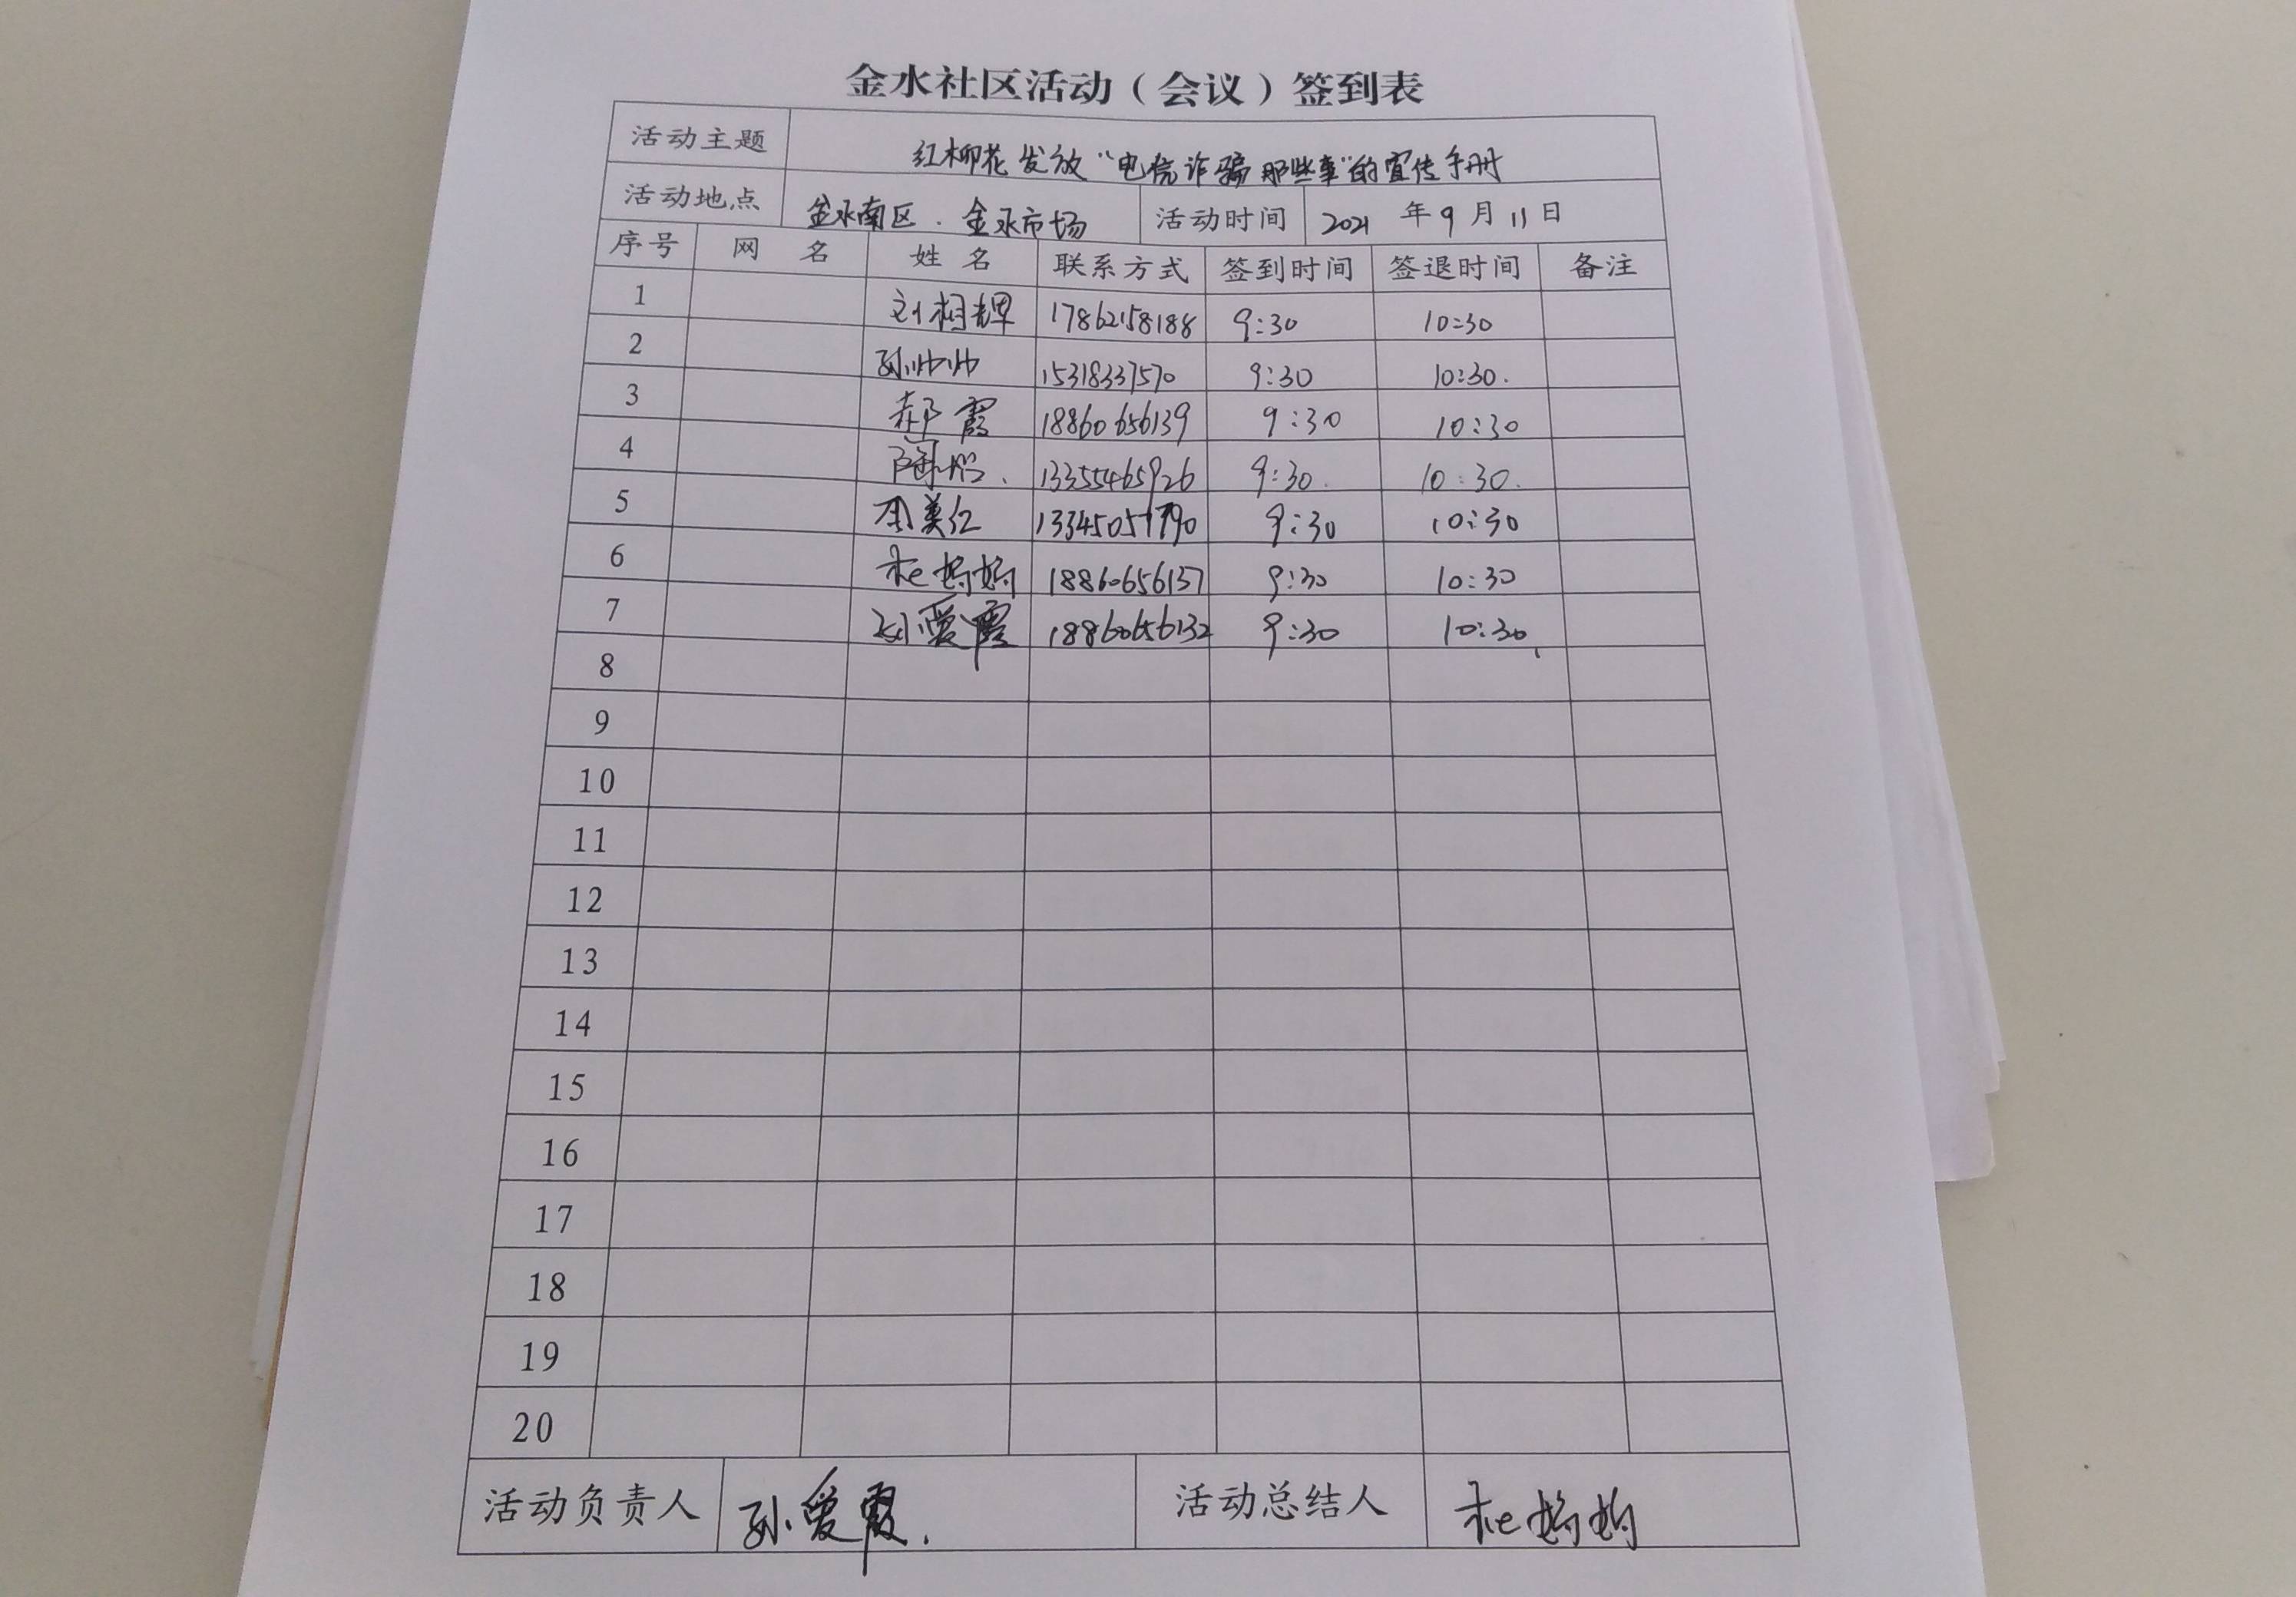 金水社区活动（会议）签到表
活动主题 红柳花发放“电信诈骗那些事”的宣传手册
活动地点 金水南区．金水市场 活动时间 2021 年 9 月 11 日
序号 网 名 姓 名 联系方式 签到时间 签退时间 备注
1 刘相辉 17862158188 9:30 10:30
2 孙帅帅 15318337570 9:30 10:30.
3 郝霞 18860656139 9:30 10:30
4 13355465926 9:30. 10:30.
5 周美红 9:30 10:30
6 18860656137 9:30 10:30
7 孙爱霞 18860656132 9:30 10:30
8
9
10
11
12
13
14
15
16
17
18
19
20
活动负责人 孙爱霞. 活动总结人